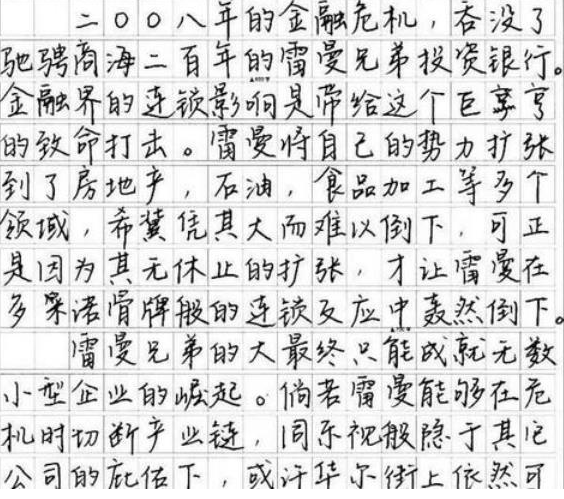 二〇〇八年的金融危机，吞没了
驰骋商海二百年的雷曼兄弟投资银行。
金融界的连锁影响是带给这个巨
的致命打击。雷曼将自己的势力扩张
到了房地产，石油，食品加工等多个
领域，希冀凭其大而难以倒下，可正
是因为其无休止的扩张，才让雷曼在
多米诺骨牌般的连锁反应中轰然倒下。
雷曼兄弟的大最终只能成就无数
小型企业的崛起。倘若雷曼能够在危
机时切断产业链，同乐视般隐于其它
公司的庇佑下，或许华尔街上依然可